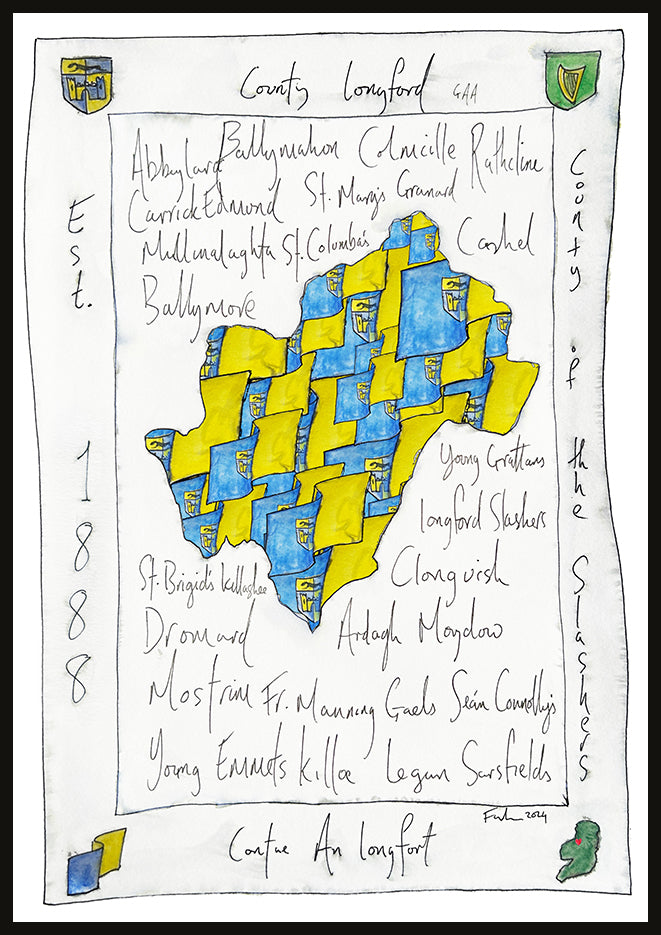 County Longford GAA
Abbeylara Ballymahon Colmcille Rathcline
CarrickEdmond St. Mary's Granard
Mullinalaghta St. Columba's Cashel
Ballymore
Est. 1888
County of thhe Slashers
Young Grattans
Longford Slashers
St. Brigids Killashee Clonguish
Dromard Ardagh Moydow
Mostrim Fr. Manning Gaels Seán Connolly's
Young Emmets Killoe Legan Sarsfields
2024
Contae An Longfort